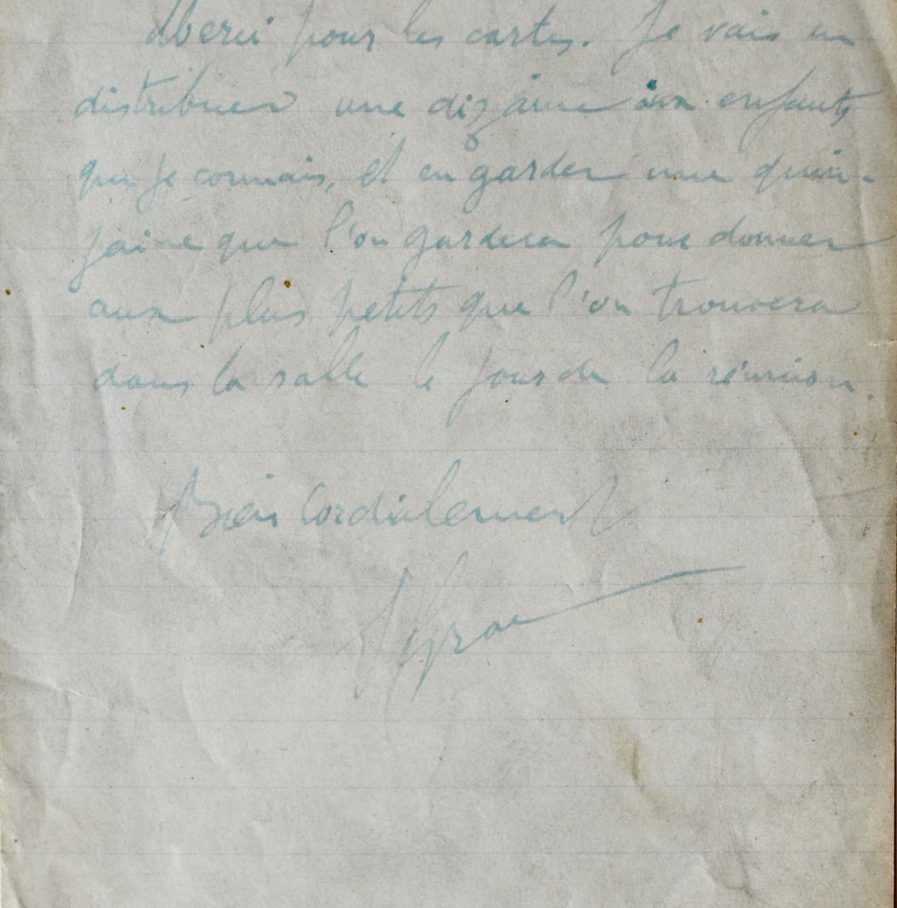 Merci pour les cartes. Je vais en
distribuer une dizaine aux enfants
que je connais, et en garder une quin-
zaine que l'on gardera pour donner
aux plus petits que l'on trouvera
dans la salle le jour de la réunion.
Bien Cordialement